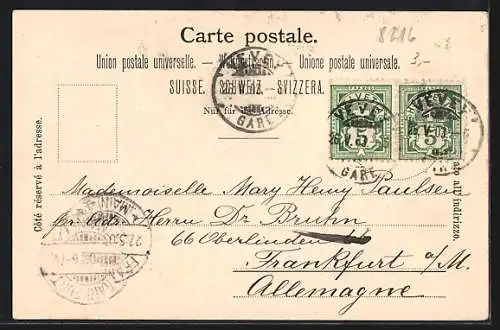 8216
3,-
Carte postale.
Union postale universelle. — Weltpostverein. — Unione postale universale.
SUISSE. SCHWEIZ. SVIZZERA.
Nur für die Adresse.
Côté réservé à l'adresse.
lato all' indirizzo.
VEVEY
GARE
FRANCO
5
VEVEY
GARE
FRANCO
5
VEVEY
Mademoiselle Mary Henny Paulsen
per Adr. Herrn Dr Bruhn
66 Oberlinden
Frankfurt a/M.
Allemagne
FRANKFURT
MAIN